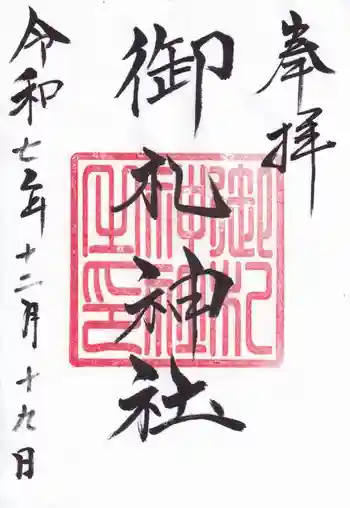 奉拝
御札神社
令和七年十二月十九日